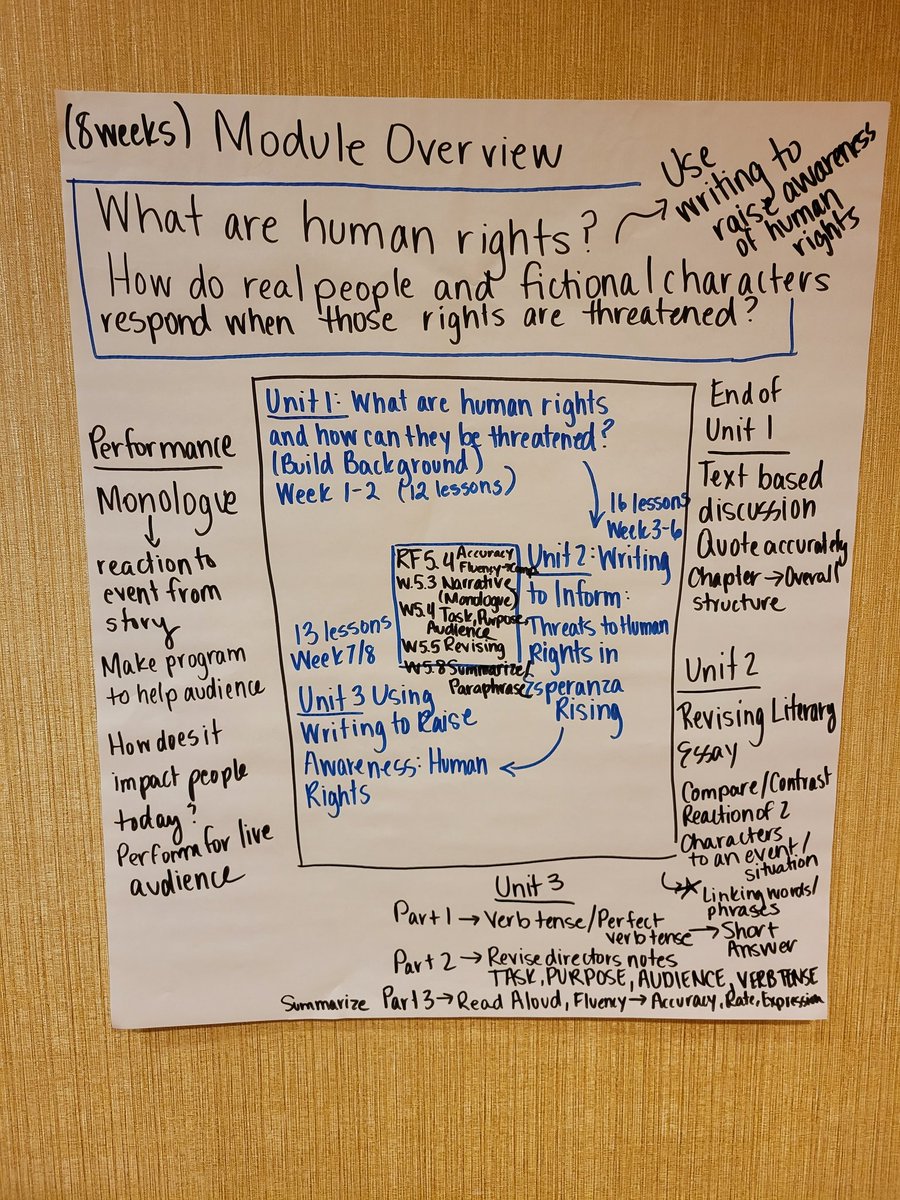 (8 weeks) Module Overview
What are human rights?
How do real people and fictional characters
respond when those rights are threatened?
Use
writing to
raise awareness
of human
rights
Performance
Monologue
reaction to
event from
story
Make program
to help audience
How does it
impact people
today?
Perform for live
audience
Unit 1: What are human rights
and how can they be threatened?
(Build Background)
Week 1-2 (12 lessons)
16 lessons
Week 3-6
Unit 2: Writing
to Inform:
Threats to Human
Rights in
Esperanza
Rising
RF 5.4 Accuracy
Fluency → Comp
W.5.3 Narrative
(Monologue)
W5.4 Task, Purpose,
Audience
W5.5 Revising
W5.8 Summarize/
Paraphrase
13 lessons
Week 7/8
Unit 3 Using
Writing to Raise
Awareness: Human
Rights
End of
Unit 1
Text based
discussion
Quote accurately
Chapter → Overall
structure
Unit 2
Revising Literary
Essay
Compare/Contrast
Reaction of 2
Characters
to an event/
situation
Linking words/
phrases
Unit 3
Part 1 → Verb tense/Perfect
verb tense → Short
Answer
Part 2 → Revise directors notes
TASK, PURPOSE, AUDIENCE, VERB TENSE
Summarize Part 3 → Read Aloud, Fluency → Accuracy, Rate, Expression